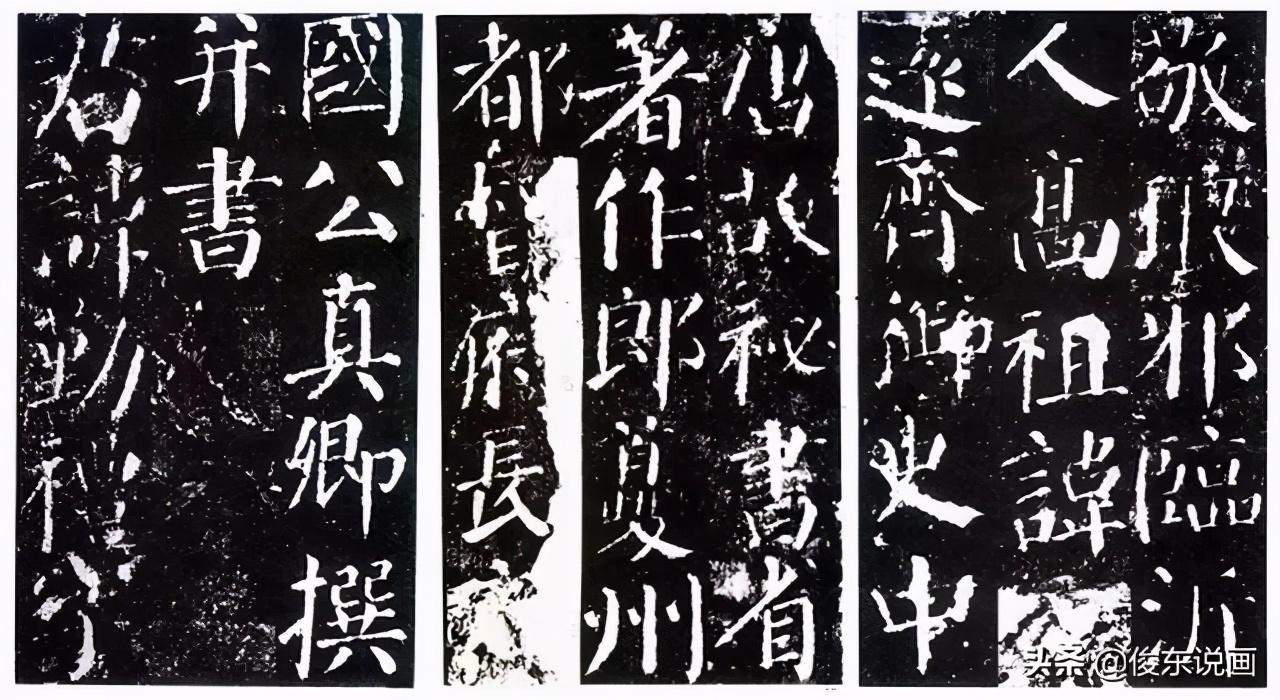 敬琅邪臨沂
人高祖諱
遠齊御史中
唐故秘書省
著作郎夔州
都督府長
國公真卿撰
并書
君諱勤禮字
头条@俊东说画